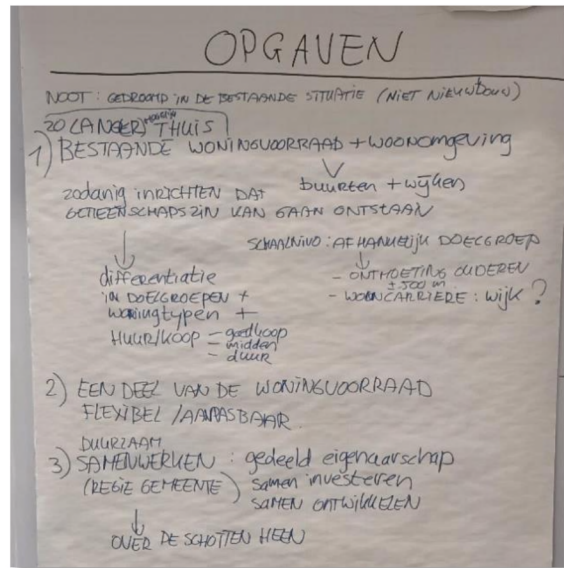 OPGAVEN
NOOT: GEDROOMD IN DE BESTAANDE SITUATIE (NIET NIEUWBOUW)
ZO LANG(ER) MOGELIJK THUIS
1) BESTAANDE WONINGVOORRAAD + WOONOMGEVING
buurten + wijken
zodanig INRICHTEN DAT
GEMEENSCHAPSZIN KAN GAAN ONTSTAAN
SCHAALNIVO: AFHANKELIJK DOELGROEP
- ONTMOETING OUDEREN
± 500 m
- WOONCARRIERE: WIJK ?
differentiatie
IN DOELGROEPEN +
woningtypen +
HUUR/KOOP - goedkoop
- midden
- duur
2) EEN DEEL VAN DE WONINGVOORRAAD
FLEXIBEL / AANPASBAAR.
DUURZAAM
3) SAMENWERKEN: gedeeld eigenaarschap
(REGIE GEMEENTE) samen investeren
SAMEN ONTWIKKELEN
OVER DE SCHOTTEN HEEN